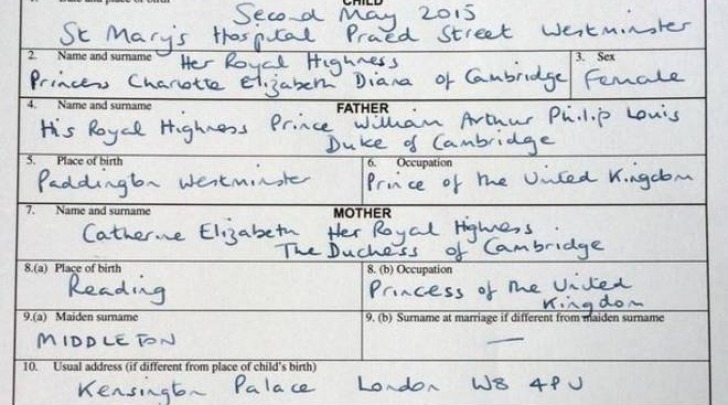 CHILD
Second May 2015
St Mary's Hospital Praed Street Westminster
2. Name and surname Her Royal Highness
Princess Charlotte Elizabeth Diana of Cambridge
3. Sex
Female
4. Name and surname
FATHER
His Royal Highness Prince William Arthur Philip Louis
Duke of Cambridge
5. Place of birth
Paddington Westminster
6. Occupation
Prince of the United Kingdom
7. Name and surname
MOTHER
Catherine Elizabeth Her Royal Highness
The Duchess of Cambridge
8.(a) Place of birth
Reading
8. (b) Occupation
Princess of the United
Kingdom
9.(a) Maiden surname
MIDDLETON
9. (b) Surname at marriage if different from maiden surname
—
10. Usual address (if different from place of child's birth)
Kensington Palace London W8 4PU